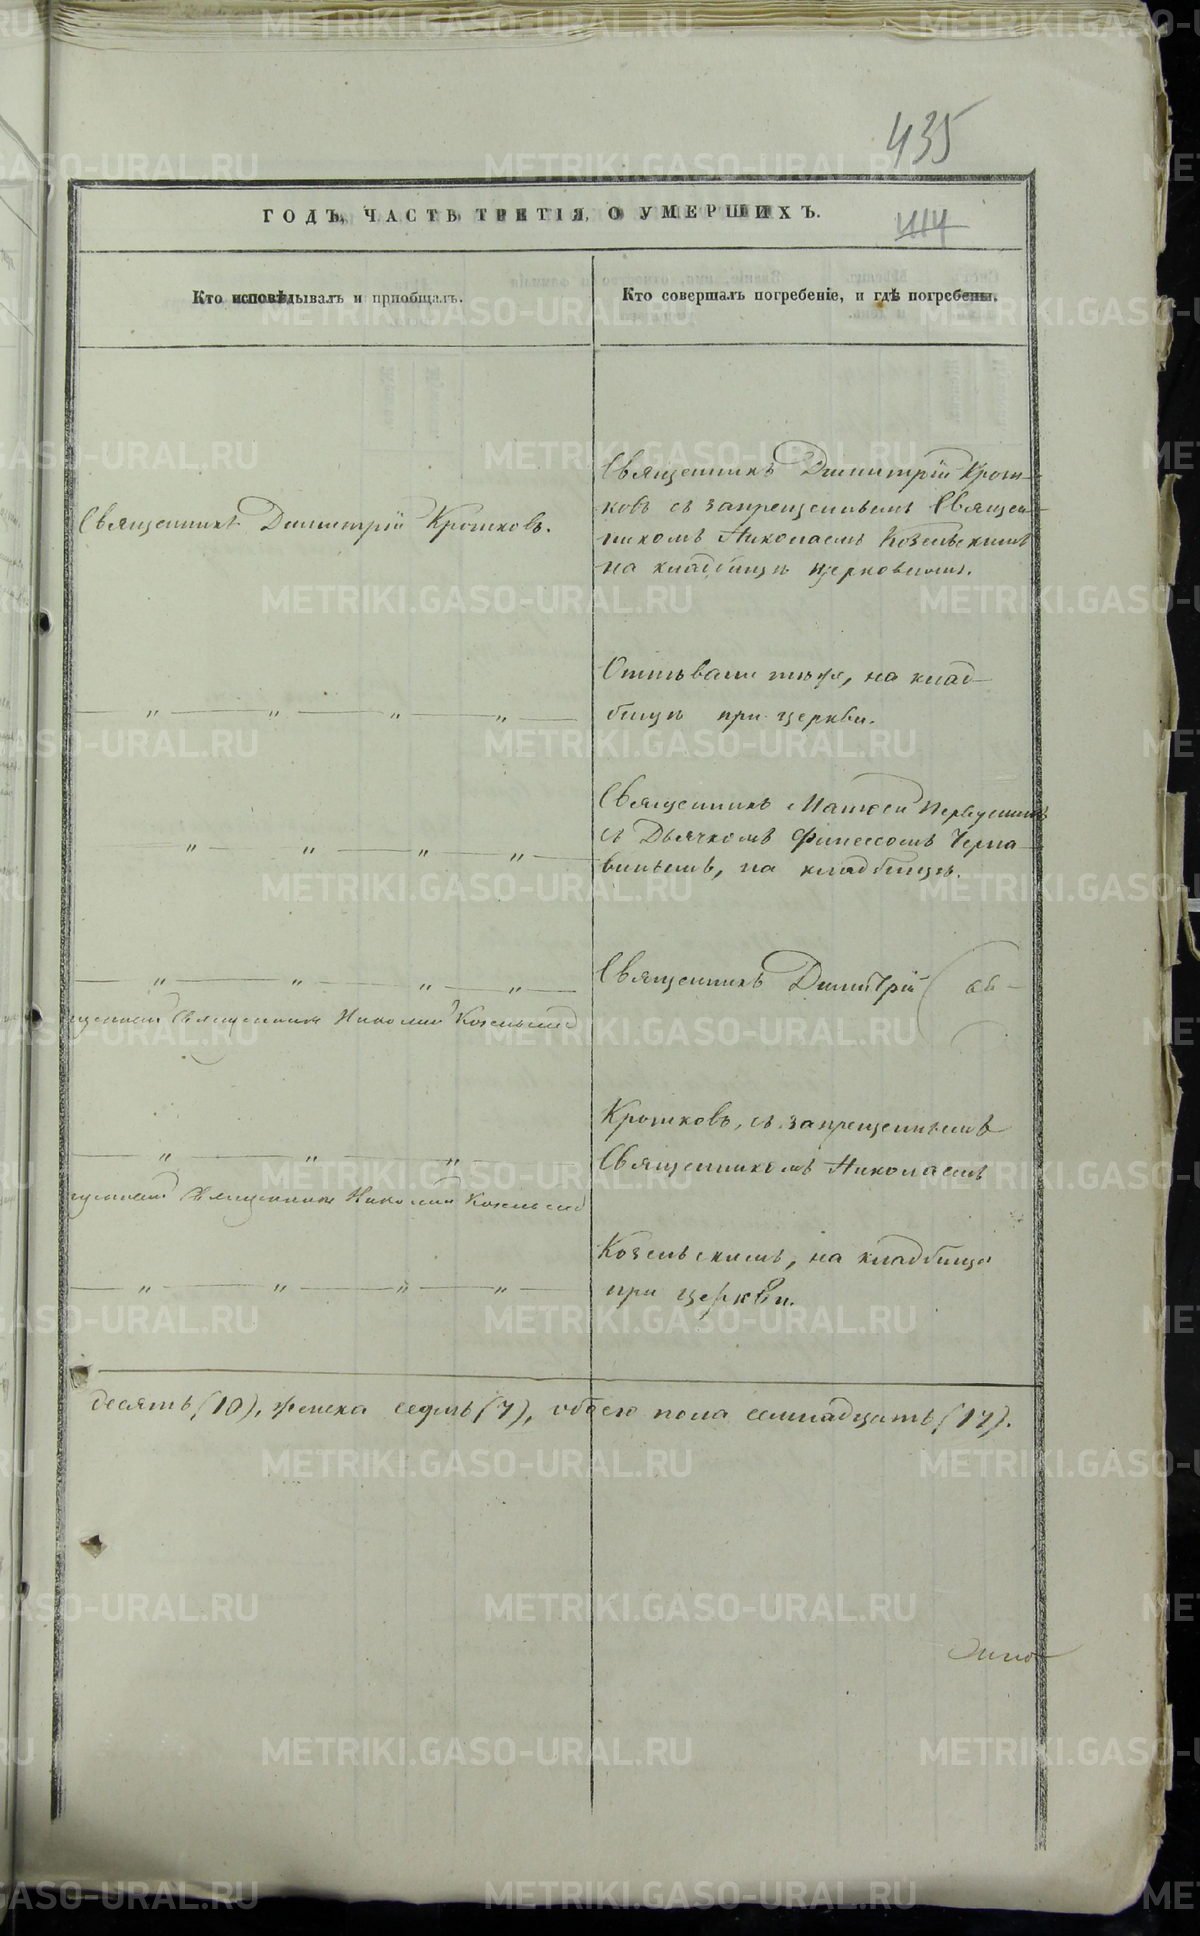 435
ГОДЪ, ЧАСТЬ ТРЕТІЯ, О УМЕРШИХЪ.
414
Кто исповѣдывалъ и пріобщалъ.
Кто совершалъ погребеніе, и гдѣ погребены.
Священникъ Димитрій Кротковъ.
Священникъ Димитрій Крот-
ковъ съ запрещеннымъ Священ-
никомъ Николаемъ Козельскимъ
на кладбищѣ церковномъ.
— „ — „ — „ — „ —
Отпѣвали тѣже, на клад-
бищѣ при церкви.
„ — „ — „ — „ —
Священникъ Матѳей
съ Дьячкомъ Черна-
винымъ, на кладбищѣ.
— „ — „ — „ — „ —
Священникъ Николай Козельскій
Священникъ Димитрій
— „ — „ — „ —
Священникъ Николай Козельскій
Кротковъ, съ запрещеннымъ
Священникомъ Николаемъ
— „ — „ — „ — „ —
Козельскимъ, на кладбищѣ
при церкви.
десять (10), женска седмь (7), обоего пола семнадцать (17).
METRIKI.GASO-URAL.RU